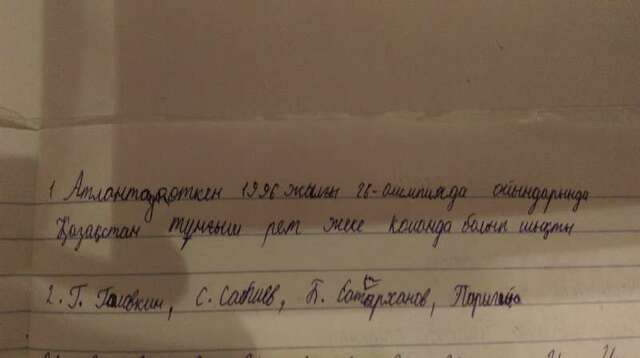 1 Атлантада өткен 1996 жылғы 26-олимпияда ойындарында
Қазақстан тұңғыш рет жеке команда болып шықты
2. Г. Головкин, С. Сапиев, Б. Сатарханов, Париғада